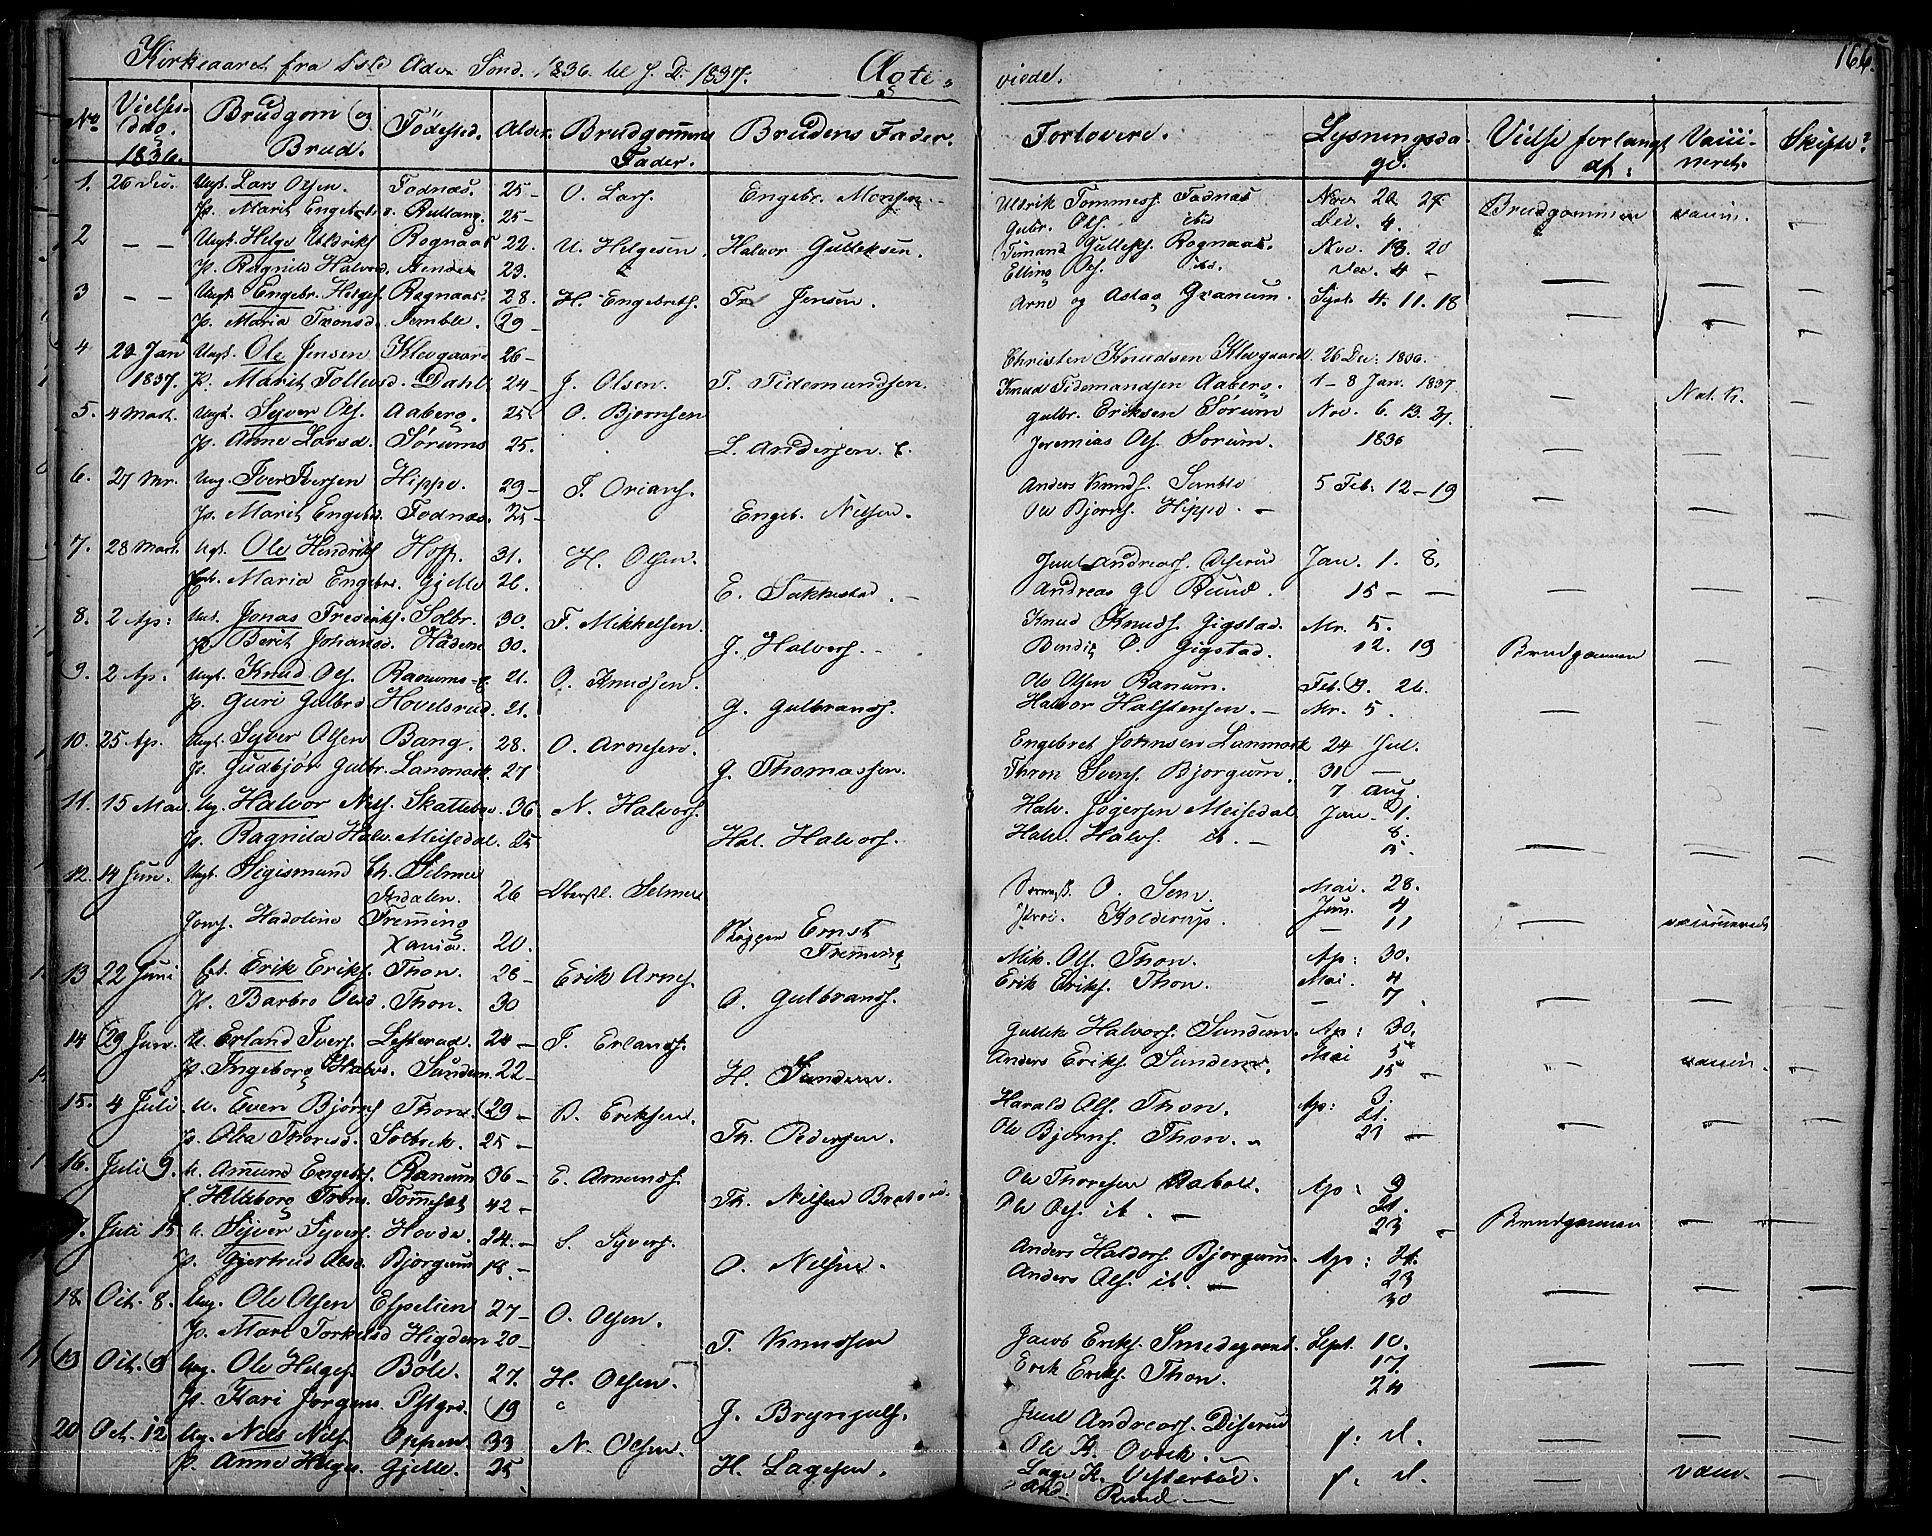 Kirkeaaret fra 1ste Adv. Sønd. 1836 til J. D. 1837. Ægte-
viede. 166.
No Vielses dag. 1836. Brudgom og Brud. Födested. Alder. Brudgommens Fader. Brudens Fader. Forlovere. Lysningsdage. Vielse forlangt af: Vaccineret. Skifte?
1. 26 Dec. Ungk. Lars Olsen. Fodnæs. 25 - O. Lars. Engebr. Monsen. Uldrik Tommess. Fodnæs Nov. 20 27 Brudgommen vaccin. -
P. Marit Engebr. Rullang. 25 - Gulbr. Ols. ibid Dec. 4.
2 - - Ungk. Helge Uldriks. Rognaas 22. U. Helgesen. Halvor Gulleksen. Gulleks. Rognaas. Nov. 13. 20
P. Ragnild Halvord. 23. Elling Ols. ibd. Dec. 4 -
3 - - Ungk. Engebr. Helges. Rognaas. 28. H. Engebreths. Tr. Jensen. Arne og Aslag Granum. Sept. 4. 11. 18
P. Maria Tronsd. Semble. 29 -
4 29 Jan 1837. Ungk. Ole Jensen Klevgaard 26 - J. Olsen. T. Tidemandsen. Christen Knudsen Klevgaard 26 Dec: 1836.
P. Marit Tollevsd. Dahl 24 - Knud Tidemandsen Aaberg. 1 - 8 Jan. 1837. - Nat. K. -
5. 4 Mart. Ungk. Syver Ols. Aaberg. 25 O. Bjornsen Gulbr. Eriksen Sørum Nov. 6. 13. 27.
P. Anne Larsd. Sørums 25. L. Andersen. Jeremias Ols. Sorum. 1836
6. 27 Mr. Ung. Iver Iversen Hippe. 29 - I. Anders Knuds. Semble 5 Feb. 12 - 19
P. Marit Engebd. Fodnæs. 25 - Engeb. Nilsen. Ole Bjorns. Hippe. -
7. 28 Mart. Ugk. Ole Hendriks. Hoff. 31. H. Olsen. Juul Andreas. Diserud Jan. 1. 8.
Maria Engebr. Gjelle 26. E. Sakkestad. Andreas G. Rund. 15 - -
8. 2 Ap: Ungk. Jonas Frederiks. Solbr. 30. F. Mikkelsen. Knud Knuds. Gigstad. Mr. 5.
P. Berit Johansd. Hadem 30. J. Halvors. - Bendix O. Gigstad. 12. 19 Brudgommen
9. 2 Ap. Ungk. Knud Ols. Ranums 21. O. Knudsen. Ole Olsen Ranum. Feb. 19. 26.
P. Guri Gulbrd Hovelsrud. 21. G. Gulbrands. Halvor Halstensen. - Mr. 5.
10. 25 Ap. Ungk. Syver Olsen Bang. 28. O. Arnesen. Engebret Johnsen Lanmark 24 Jul.
P. Gudbjør Gulbr. Lanmark. 27 G. Thomassen. Thron Svens. Bjorgum. 31 - 7 Aug.
11. 15 Mai Ug. Halvor Nils. Skattebo. 36 N. Halvors. Halv. Jögersen Meisedal Jan. 1.
P. Ragnild Halv. Meisedal. 25 Hal. Halvors. Halv. Halvs. ib. - 8. 15.
12. 14 Jun. Ungk. Sigismund Ch. Selmer 26 Oberstl. Selmer O. Sem. Mai. 28.
Jomf. Hadoline Fremming Xania. 20. Ernst Fremming Holderup. Jun. 4 - 11 - vaccinerede
13 22 Juni Erik Eriks. Thon. 28 - Erik Arnes. Mik. Ols. Thon. Ap: 30.
P. Barbro Olsd. Thon. 30 O. Gulbrands. Erik Eriks. Thon. Mai. 4 - 7
14 29 Jun. U. Erland Ivers. Lesterud. 24 - I. Erlands. Gullek Halvors. Sundem. Ap: 30.
P. Ingeborg Halvd. Sundem. 22 - H. Sundem. Anders Eriks. Sundem. Mai 5 15 - - vaccin. -
15. 4 Juli U. Even Bjorns. Thon. 29 - B. Eriksen. Harald Ols. Thon. Ap: 3. 21.
P. Olea Thoresd. Solbrek. 25 - Th. Pedersen. Ole Bjorns. Thon. 23 -
16. Juli 9. U. Amund Engebr. Ranum 36 - E. Amunds. Ole Thoresen Aabol. Ap: 9 21. 23 -
Hilleborg Tomhol 42 - Th. Nilsen Ole Ols. ib. -
17. Juli 15 U. Syver Syvers. Hovde. 24. - S. Syvers. Anders Haldors. Bjorgum. Ap: 21. Brudgommen
P. Gjertrud Olsd. Bjorgum 18. - O. Nilsen. Anders Ols. ib. - 23 30
18. Oct. 8. Ung. Ole Olsen Espelien 27 - O. Olsen. Jacob Eriks. Smedsgaard. Sept. 10.
P. Mari Torkilsd Higdem 20 - T. Knudsen Erik Eriks. Thon. 17. 24
19 Oct. 8 Ung. Ole Helges. Böle. 27. H. Olsen. Juul Andreas. Diserud f: d.
P. Kari Jorgens. 19 J. Bryngels. Ole K. Ovrek.
20 Oct. 12 Ug. Nils Nils. Oppen 33 N. Olsen. Lage K. Vesterböe. f: d. - vaccin. -
P. Anne Helge. Gjelle. 25 H. Lagesen. And. Rund -